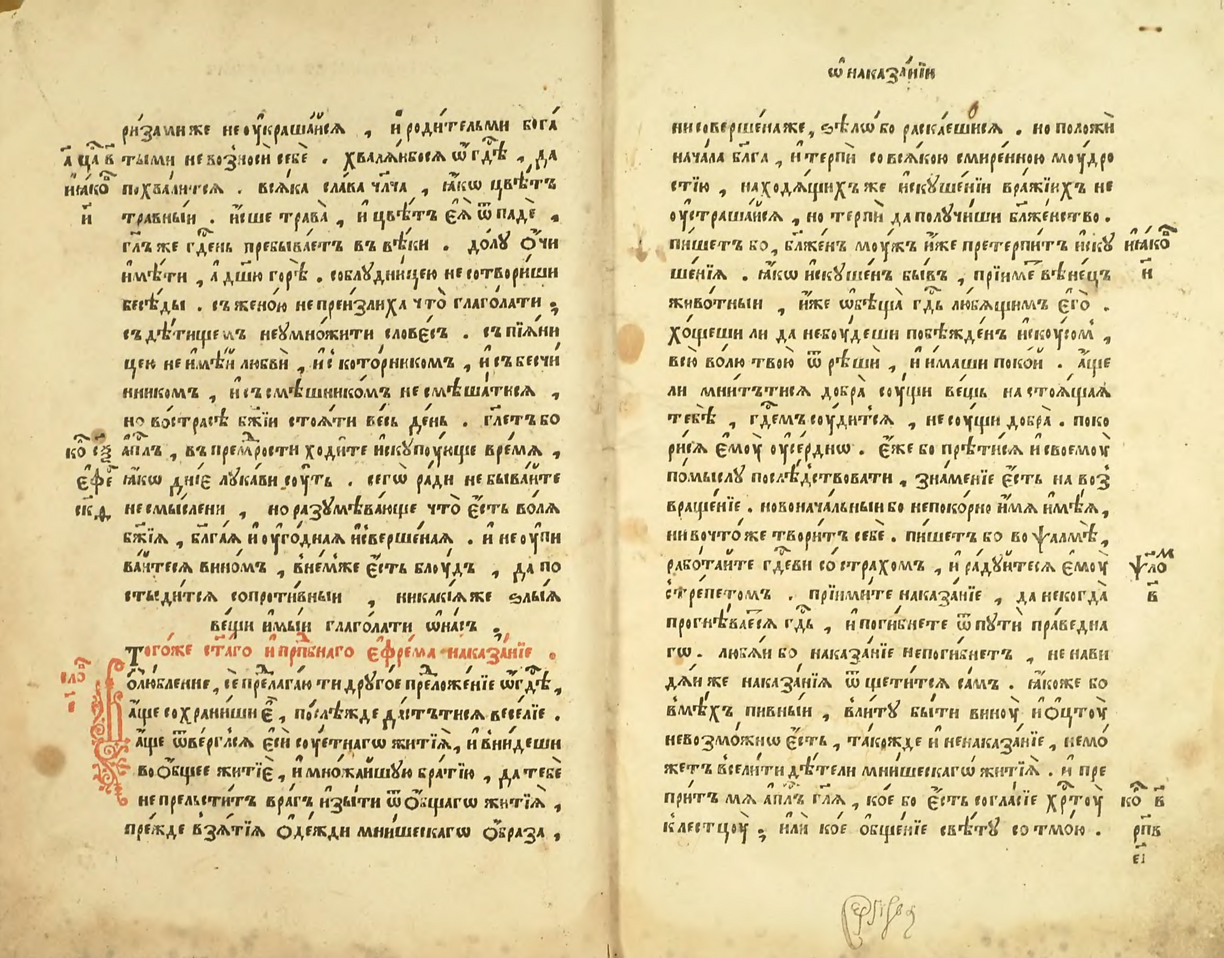 ри́зами же не оу҆краша́йсѧ , и҆ роди́тельми бога́
тыми не возноси́ себѐ . хвалѧ́йбосѧ ѡ҆ гд҇ѣ , да
похва́литсѧ . всѧ́ка сла́ва чл҃ча , ꙗ҆́кѡ цвѣ́тъ
травны́и . и҆́сше трава̀ , и҆ цвѣ́тъ є҆ѧ̀ ѿпадѐ ,
гл҃ъ же гд҇ень пребыва́етъ въ вѣ́ки . до́лꙋ ѻ҆́чи
и҆мѣ́ти , а҆ дш҃ю горѣ̀ . соблꙋдни́цею не сотвори́ши
бесѣ́ды . съ жено́ю не преи́злиха что̀ глаго́лати ;
съ дѣ́тищемъ неꙋмно́жити слове́съ . съ пїѧ́ни
цею не и҆мѣ́й любвѝ , и҆ с̾ кото́рникомъ , и҆ съ бесчи́
нникомъ , и҆ съ смѣшнико́мъ не смѣша́тисѧ ,
но во́ страсѣ бж҃їи стоѧ́ти ве́сь де́нь . гл҃етъ бо
а҆пл҇ъ , въ премр҇ости ходи́те и҆скꙋпоую́ще вре́мѧ ,
ꙗ҆́кѡ дні́е лꙋка́ви соу́ть . сегѡ̀ ра́ди не быва́ите
несмы́слени , но разꙋмѣва́юще что̀ є҆́сть во́лѧ
бж҃їѧ , бл҃га́ѧ и҆ оу҆го́днаѧ и҆ сверше́наѧ . и҆ не оу҆пи
ва́итесѧ вино́мъ , в̾не́мже є҆́сть блоу́дъ , да по
стыди́тсѧ сопроти́вныи , никакі́ѧже ѕлы́ѧ
ве́щи и҆мы́и глаго́лати ѡ҆ на́съ .
Того́же ст҃а́го и҆ прп҇бнаго є҆фре́ма наказа́нїе .
о҆лю́бление , се предлага́ю ти дрꙋго́е предложе́нїе ѡ҆ гд҇ѣ ,
а҆́ще сохрани́ши є҆̀ , по́слѣжде да́стътисѧ весе́лїе .
а҆́ще ѿве́рглсѧ є҆сѝ соуетнагѡ житїѧ̀ , и҆ вни́деши
во ѻ҆́бщее житїѐ , и҆ мно́жайшꙋю бра́тїю , да тебѐ
не прельсти́тъ вра́гъ и҆зы́ти ѿ ѻ҆́бщагѡ житїѧ̀ ,
пре́жде взѧ́тїѧ ѻ҆де́жди мни́шескагѡ ѻ҆́браза ,
ѡ҆ наказа́нїи
ни соверше́на же , ѕѣлѡ̀ бо раска́ешисѧ . но положѝ
нача́ла бл҃га , и҆ терпѝ со всѧ́кою смире́нною моу́дро
стїю , находѧ́щихъ же и҆скꙋше́нїи вра́жїихъ не
оу҆страша́йсѧ , но терпѝ да полꙋчи́ши бл҃же́нство .
пи́шетъ бо , бл҃же́н моу́жъ и҆́же претерпи́тъ и҆скꙋ
ше́нїѧ . ꙗ҆́кѡ и҆скꙋше́нъ бы́въ , прїи́метъ вѣне́цъ
живо́тныи , и҆́же ѡ҆бѣща̀ гд҇ь лю́бѧщимъ є҆гѐ .
хо́щеши ли да не боу́деши побѣжде́нъ и҆скоусом̾ ,
всю̀ во́лю твою̀ ѿрѣшѝ , и҆ и҆́маши поко́й . а҆́ще
ли мни́тътисѧ добра̀ соу́щи ве́щь настоѧ́щаѧ
тебѣ̀ , гд҇емъ соу́дитсѧ , не соу́щи добра̀ . поко
ри́сѧ є҆моу̀ оу҆се́рднѡ . є҆́же бо прѣ́тисѧ и҆ своемоу̀
по́мыслꙋ послѣ́дствовати , зна́менїе є҆́сть на воз
враще́нїе . новонача́льныи бо непоко́рно и҆́мѧ и҆мѣ́ѧ ,
ни во что́же твори́тъ себѐ . пи́шетъ бо во ѱалмѣ̀ ,
рабо́тайте гд҇еви со стра́хомъ , и҆ ра́дꙋитесѧ є҆моу̀
с̾тре́петомъ . прїими́те наказа́нїе , да не когда̀
прогнѣ́ваетсѧ гд҇ь , и҆ поги́бнете ѿ пꙋтѝ пра́ведна
гѡ . любѧ́и бо наказа́нїе не поги́бнетъ , не нави
дѧ́и же наказа́нїѧ ѿщети́тсѧ са́мъ . ꙗ҆́коже бо
в̾мѣ́хъ пи́вныи , влі́тꙋ бы́ти виноу̀ и҆ ѻ҆́цтоу̀
невозмо́жнѡ є҆́сть , та́кожде и҆ ненаказа́нїе , не мо́
жетъ всели́ти дѣ́тели мни́шескагѡ житїѧ̀ . и҆ пре
при́тъ мѧ а҆пл҇ъ гл҃ѧ , ко́е бо є҆́сть согла́сїе хр҇тоу̀
к̾лестцоу̀ ; и҆лѝ ко́е ѻ҆бще́нїе свѣ́тꙋ со тмо́ю .